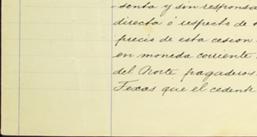 senta y sin responsa
directa ó respecto de
precio de esta cesion
en moneda corriente
del Norte pagaderos
Texas que el cedente